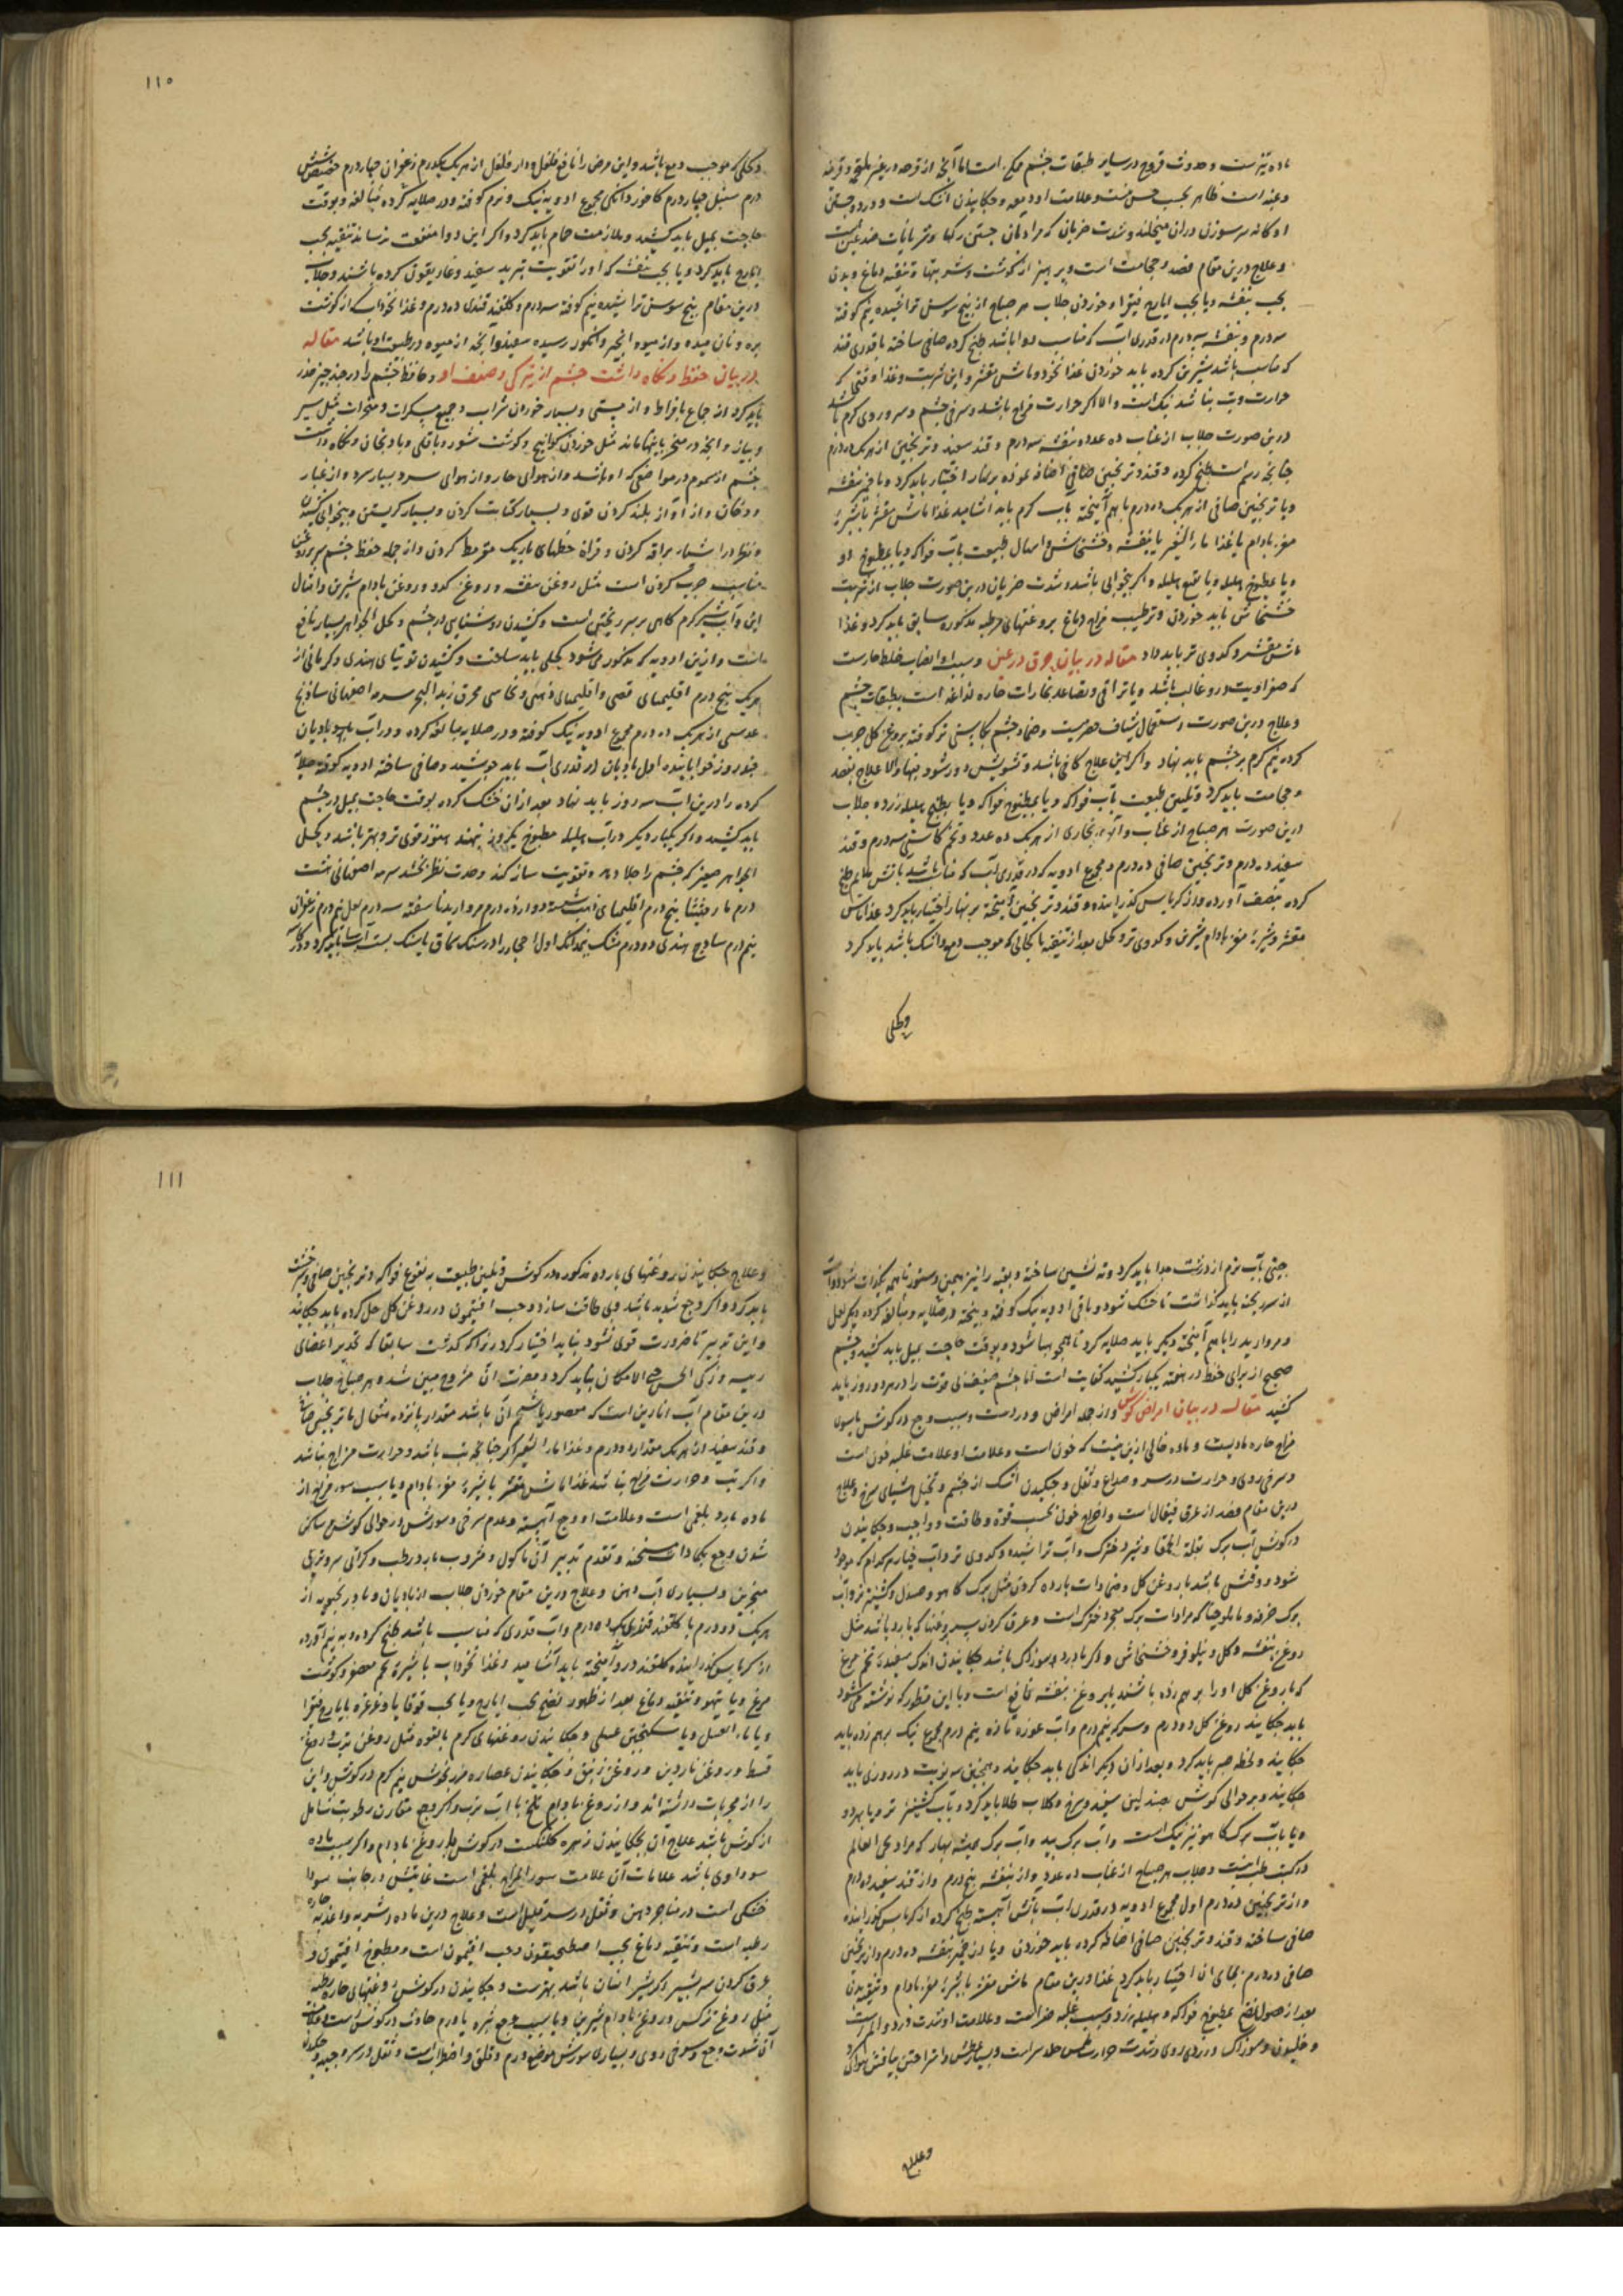 ماده تیزست و حدوث قروح در سایر طبقات چشم ممکن است اما آنچه از قرحه در غیر ملتحمه و قرنیه
و عنبه است ظاهر بحسب حس نیست و علامت او دمعه و چکانیدن اشک است و درد و جستن
و علاج درین مقام فصد و حجامت است و پرهیز از گوشت و شیرینیها و تنقیه دماغ و بدن
بحب بنفشه و یا بحب ایارج فیقرا و خوردن جلاب هر صباح از بیخ سوسن تراشیده نیم کوفته
سه درم و بنفشه سه درم در قدری آب که مناسب دوا باشد طبخ کرده صافی ساخته با قدری قند
که مناسب باشد شیرین کرده باید خوردن غذا نخود و ماش مقشر و این شربت و غذا وقتی که
حرارت و تب نباشد نیک است والا اگر حرارت مزاج باشد و سرخی چشم و سر و روی گرم باشد
درین صورت جلاب از عناب ده عدد بنفشه سه درم و قند سفید و ترنجبین از هر یک ده درم
چنانچه رسم است طبخ کرده و قند و ترنجبین صافی اضافه نموده بر نهار اختیار باید کرد و یا خمیر بنفشه
و یا ترنجبین صافی از هر یک ده درم با هم آمیخته بآب گرم باید آشامید غذا ماش مقشر با شیره
مغز بادام یا غذا ماء الشعیر با بنفشه و خشخاش و اسهال طبیعت بآب فواکه و یا بمطبوخ او
و یا بمطبوخ هلیله و یا نقیع هلیله و اگر بیخوابی باشد و شدت ضربان درین صورت جلاب از شربت
خشخاش باید خوردن و ترطیب مزاج دماغ بروغنهای مرطبه مذکوره سابق باید کرد و غذا
ماش مقشر و کدوی تر باید داد مقاله در بیان حرق در عین و سبب او انصباب خلط حارست
که صفراویت درو غالب باشد و یا تراقی و تصاعد بخارات حاره لذاعه است بطبقات چشم
و علاج درین صورت استعمال شیاف حصرمیست و ضماد چشم بکاسنی تر کوفته بروغن گل چرب
کرده نیم گرم بر چشم باید نهاد و اگر این علاج کافی باشد و تشویش دور شود فبها والا علاج بفصد
و حجامت باید کرد و تلیین طبیعت بآب فواکه و یا بمطبوخ فواکه و یا بطبخ هلیله زرد و جلاب
درین صورت هر صباح از عناب و آلو بخاری از هر یک ده عدد و تخم کاسنی سه درم و قند
سفید ده درم و ترنجبین صافی ده درم و مجموع ادویه که در قدری آب که مناسب باشد بآتش ملایم طبخ
کرده بنصف آورده و از کرباس گذرانیده و قند و ترنجبین آمیخته بر نهار اختیار باید کرد غذا ماش
مقشر و شیره مغز بادام شیرین و کدوی تر و کحل بعد از تنقیه با کحالی که موجب دمع و اشک باشد باید کرد
وکحلی
۱۱۰
وکحلی که موجب دمع باشد و این مرض را نافع فلفل و دار فلفل از هر یک یکدرم زعفران چهار درم حضض شش
درم سنبل چهار درم کافور دانکی مجموع ادویه نیک و نرم کوفته و در صلایه کرده مبالغه و بوقت
حاجت بمیل باید کشید و ملازمت حمام باید کرد و اگر این دوا منفعت نرساند تنقیه بحب
ایارج باید کرد و یا بحب بنفشه که او را تقویت بتربد سفید و غاریقون کرده باشند و جلاب
درین مقام بیخ سوسن تراشیده نیم کوفته سه درم و گلقند قندی ده درم و غذا نخوداب از گوشت
بره و نان میده و از میوه انجیر و انگور رسیده سفید و آنچه از میوه در طبیعت او باشد مقاله
در بیان حفظ و نگاه داشت چشم از تیرگی و ضعف او و حافظ چشم را از چند چیز حذر
باید کرد از جماع بافراط و از مستی و بسیار خوردن شراب و جمیع مسکرات و مبخرات مثل سیر
و پیاز و آنچه در مبخر باینها ماند مثل خوردن کوامیخ و گوشت شور و باقلی و بادنجان و نگاه داشت
چشم از سموم در مواضعی که او باشد و از هوای حار و از هوای سرد بسیار سرد و از غبار
و دخان و از آواز بلند کردن قوی و بسیار کتابت کردن و بسیار گریستن و بیخوابی کشیدن
و نظر در اشیاء براقه کردن و قراة خطهای باریک مقرمط کردن و از جمله حفظ چشم سر بروغن
مناسب چرب کردن است مثل روغن بنفشه و روغن کدو و روغن بادام شیرین و امثال
این و آب شیر گرم گاهی بر سر ریختن است و کشیدن روشنایی در چشم و کحل الجواهر بسیار نافع
است و ازین ادویه که مذکور میشود کحلی باید ساخت و کشیدن توتیای هندی و کرمانی از
هر یک پنج درم اقلیمیای فضی و اقلیمیای ذهبی و نحاسی محرق زبد البحر سرمه اصفهانی ساذنج
عدسی از هر یک ده درم مجموع ادویه نیک کوفته و در صلایه مبالغه کرده و در آب بادیان
کرده را درین آب سه روز باید نهاد بعد از آن خشک کرده بوقت حاجت بمیل در چشم
باید کشید و اگر یکبار دیگر در آب هلیله مطبوخ یکروز نهند هنوز قوی تر و بهتر باشد و کحل
الجواهر صغیر که چشم را جلا دهد و تقویت ساز کند و حدت نظر بخشد سرمه اصفهانی هشت
درم مارقشیشا پنج درم اقلیمیای دوازده درم مروارید ناسفته سه درم لعل نیم درم زعفران
نیم درم ساذج هندی دو درم مشک نیمدانک اول احجار را در سنک سماق یا سنک باید کرد
جستن بآب نرم از درشت جدا باید کرد و ته نشین ساخته و بقیه را نیز بهمین دستور تا همه یکذات شود
از سر ریخته باید گذاشت تا خشک شود و باقی ادویه نیک کوفته و بیخته و در صلایه مبالغه کرده دیگر لعل
و مروارید را با هم آمیخته دیگر باید صلایه کرد تا همچو هبا شود و بوقت حاجت بمیل باید کشید و چشم
صحیح از برای حفظ در هفته یکبار کشیدن کفایت است اما چشم ضعیف بی قوت را در هر دو روز باید
کشید مقاله در بیان امراض گوش و از جمله امراض و دردست و سبب وجع در گوش یا سوء
مزاج حاره مادیست و ماده خالی ازین نیست که خون است و علامت او علامت غلبه خون است
و سرخی روی و حرارت در سر و صداع و ثقل و چکیدن اشک از چشم و تخیل اشیای سرخ و علاج
درین مقام فصد از عرق قیفال است و اخراج خون بحسب قوة و طاقت و واجب و چکانیدن
در گوش آب برگ بقلة الحمقا و شیر دخترک و آب تراشیده و کدوی تر و آب خیار هر کدام که موجود
شود و وقتی باشد با روغن گل و ضمادات بارده کردن مثل برگ کاهو و صندل و گشنیز تر و آب
روغن بنفشه و گل و نیلوفر و خشخاش و اگر با درد سوزاک باشد چکانیدن اندک سفیده تخم مرغ
که با روغن گل او را بر هم زده باشند یا بروغن بنفشه نافع است و یا این قطور که نوشته میشود
باید چکانید روغن گل دو درم و سرکه نیم درم و آب غوره تازه نیم درم مجموع نیک برهم زده باید
چکانید و لحظه صبر باید کرد و بعد از آن دیگر اندکی باید چکانید و همچنین سه نوبت در روزی باید
چکانید و بر حوالی گوش صندلین سفید و سرخ و گلاب طلا باید کرد و بآب گشنیز تر و یا بهر دو
و یا بآب برگ کاهو نیز نیک است و آب برگ بید و آب برگ همیشه بهار که مراد حی العالم
در کتب طب است و جلاب هر صباح از عناب ده عدد و از بنفشه پنج درم و از قند سفید ده درم
و از ترنجبین ده درم اول مجموع ادویه در قدری آب بآتش آهسته طبخ کرده از کرباس گذرانیده
صافی ساخته و قند و ترنجبین صافی اضافه کرده باید خوردن و یا از خمیر بنفشه ده درم و از ترنجبین
صافی ده درم بجای آن اختیار باید کرد غذا درین مقام ماش مقشر با شیره مغز بادام و تنقیه بدن
بعد از حصول نضج بمطبوخ فواکه و هلیله زرد و سبب غلبه صفراست و علامت او شدت درد و الم
و سوزاک و زردی روی و شدت حرارت ملمس جلد سر است و بسیار عطش
وعلاج
۱۱۱
و علاج چکانیدن روغنهای بارده مذکوره در گوش و تلیین طبیعت به نقوع فواکه و ترنجبین صافی و شیرخشت
باید کرد و اگر وجع شدید باشد و بی طاقت سازد و حب افیون در روغن گل حل کرده باید چکانید
و این تدبیر تا ضرورت قوی نشود نباید اختیار کرد زیرا که گذشت سابقا که تخدیر اعضای
رییسه و زکی الحس حتی الامکان نباید کرد و مضرت آن مشروح مبین شد و هر صباح جلاب
درین مقام آب انارین است که معصور با شحم آن باشد مقدار پانزده مثقال با ترنجبین صافی
و قند سفید از هر یک مقدار ده درم و غذا ماء الشعیر اگر چنانچه تب باشد و حرارت مزاج نباشد
و اگر تب و حرارت مزاج نباشد غذا ماش مقشر با شیره مغز بادام و یا سبب سوء مزاج از
ماده بارد بلغمی است و علامت او وجع آهسته و عدم سرخی و سوزش در حوالی گوش و ساکن
شدن وجع بکمادات مسخنه و تقدم تدبیر آن ماکول و مشروب بارد رطب و گرانی سر و تری
منخرین و بسیاری آب دهن و علاج درین مقام خوردن جلاب از بادیان و بادرنجبویه از
هر یک دو درم با گلقند قندی ده درم و آب قدری که مناسب باشد طبخ کرده و به نیم آورده
از کرباس گذرانیده گلقند درو آمیخته باید آشامید و غذا نخوداب با شیره تخم معصفر و گوشت
مرغ و یا تیهو و تنقیه دماغ بعد از ظهور نضج بحب ایارج و یا بحب قوقایا و غرغره بایارج فیقرا
و یا ماء العسل و یا سکنجبین عسلی و چکانیدن روغنهای گرم بالقوه مثل روغن ترب و روغن
قسط و روغن ناردین و روغن زنبق و چکانیدن عصاره مرزنجوش نیم گرم در گوش و این
را از مجربات دانسته اند و از روغن بادام تلخ با آب ترب و اگر وجع مقارن رطوبت سایل
از گوش باشد علاج آن بچکانیدن زهره کلنگست در گوش با روغن بادام و اگر سبب ماده
سوداوی باشد علامات آن علامت سوء المزاج بلغمی است غایتش در جانب سودا
خشکی است در مناخر و دهن و ثقل در سر قلیل است و علاج درین ماده اشربه و اغذیه حاره
رطبه است و تنقیه دماغ بحب اصطمخیقون و حب افتیمون است و مطبوخ افتیمون و
عرق کردن سر بشیر و اگر شیر انسان باشد بهترست و چکانیدن در گوش روغنهای حاره رطبه
مثل روغن نرگس و روغن بادام شیرین و یا سبب وجع بثره یا ورم حادث در گوش است و علامت
آن شدت وجع و سرخی روی و بسیاری سوزش موضع ورم و قلق و اضطراب است و ثقل در سر و جبهه